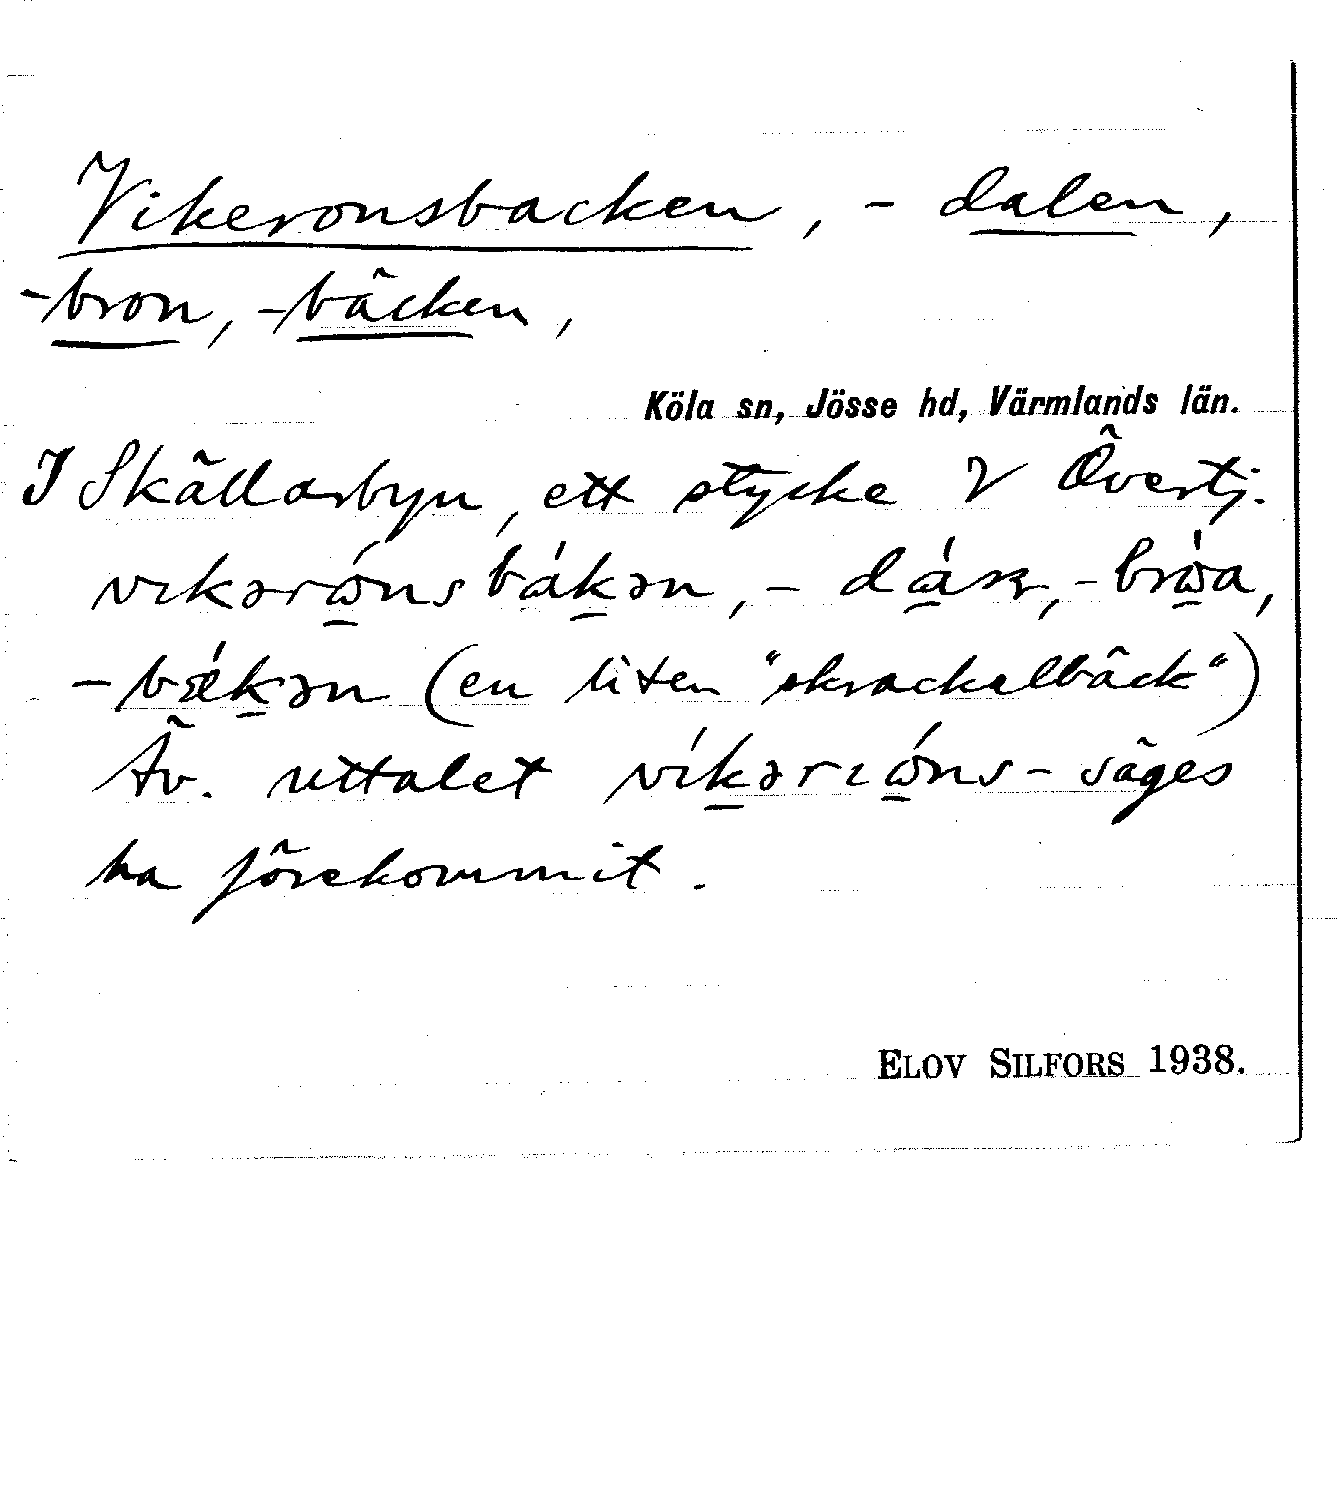 Vikeronsbacken, -dalen,
-bron, -bäcken,
Köla sn, Jösse hd, Värmlands län.
I Skällarbyn, ett stycke V Övertj.
vɪkərώ̲nsbák̲ən, -dá̲ɴ, -brὼ̲a,
-bǽk̲ən (en liten "skrackelbäck")
Äv. uttalet vík̲ərɪώ̲ns- säges
ha förekommit.
ELOV SILFORS 1938.